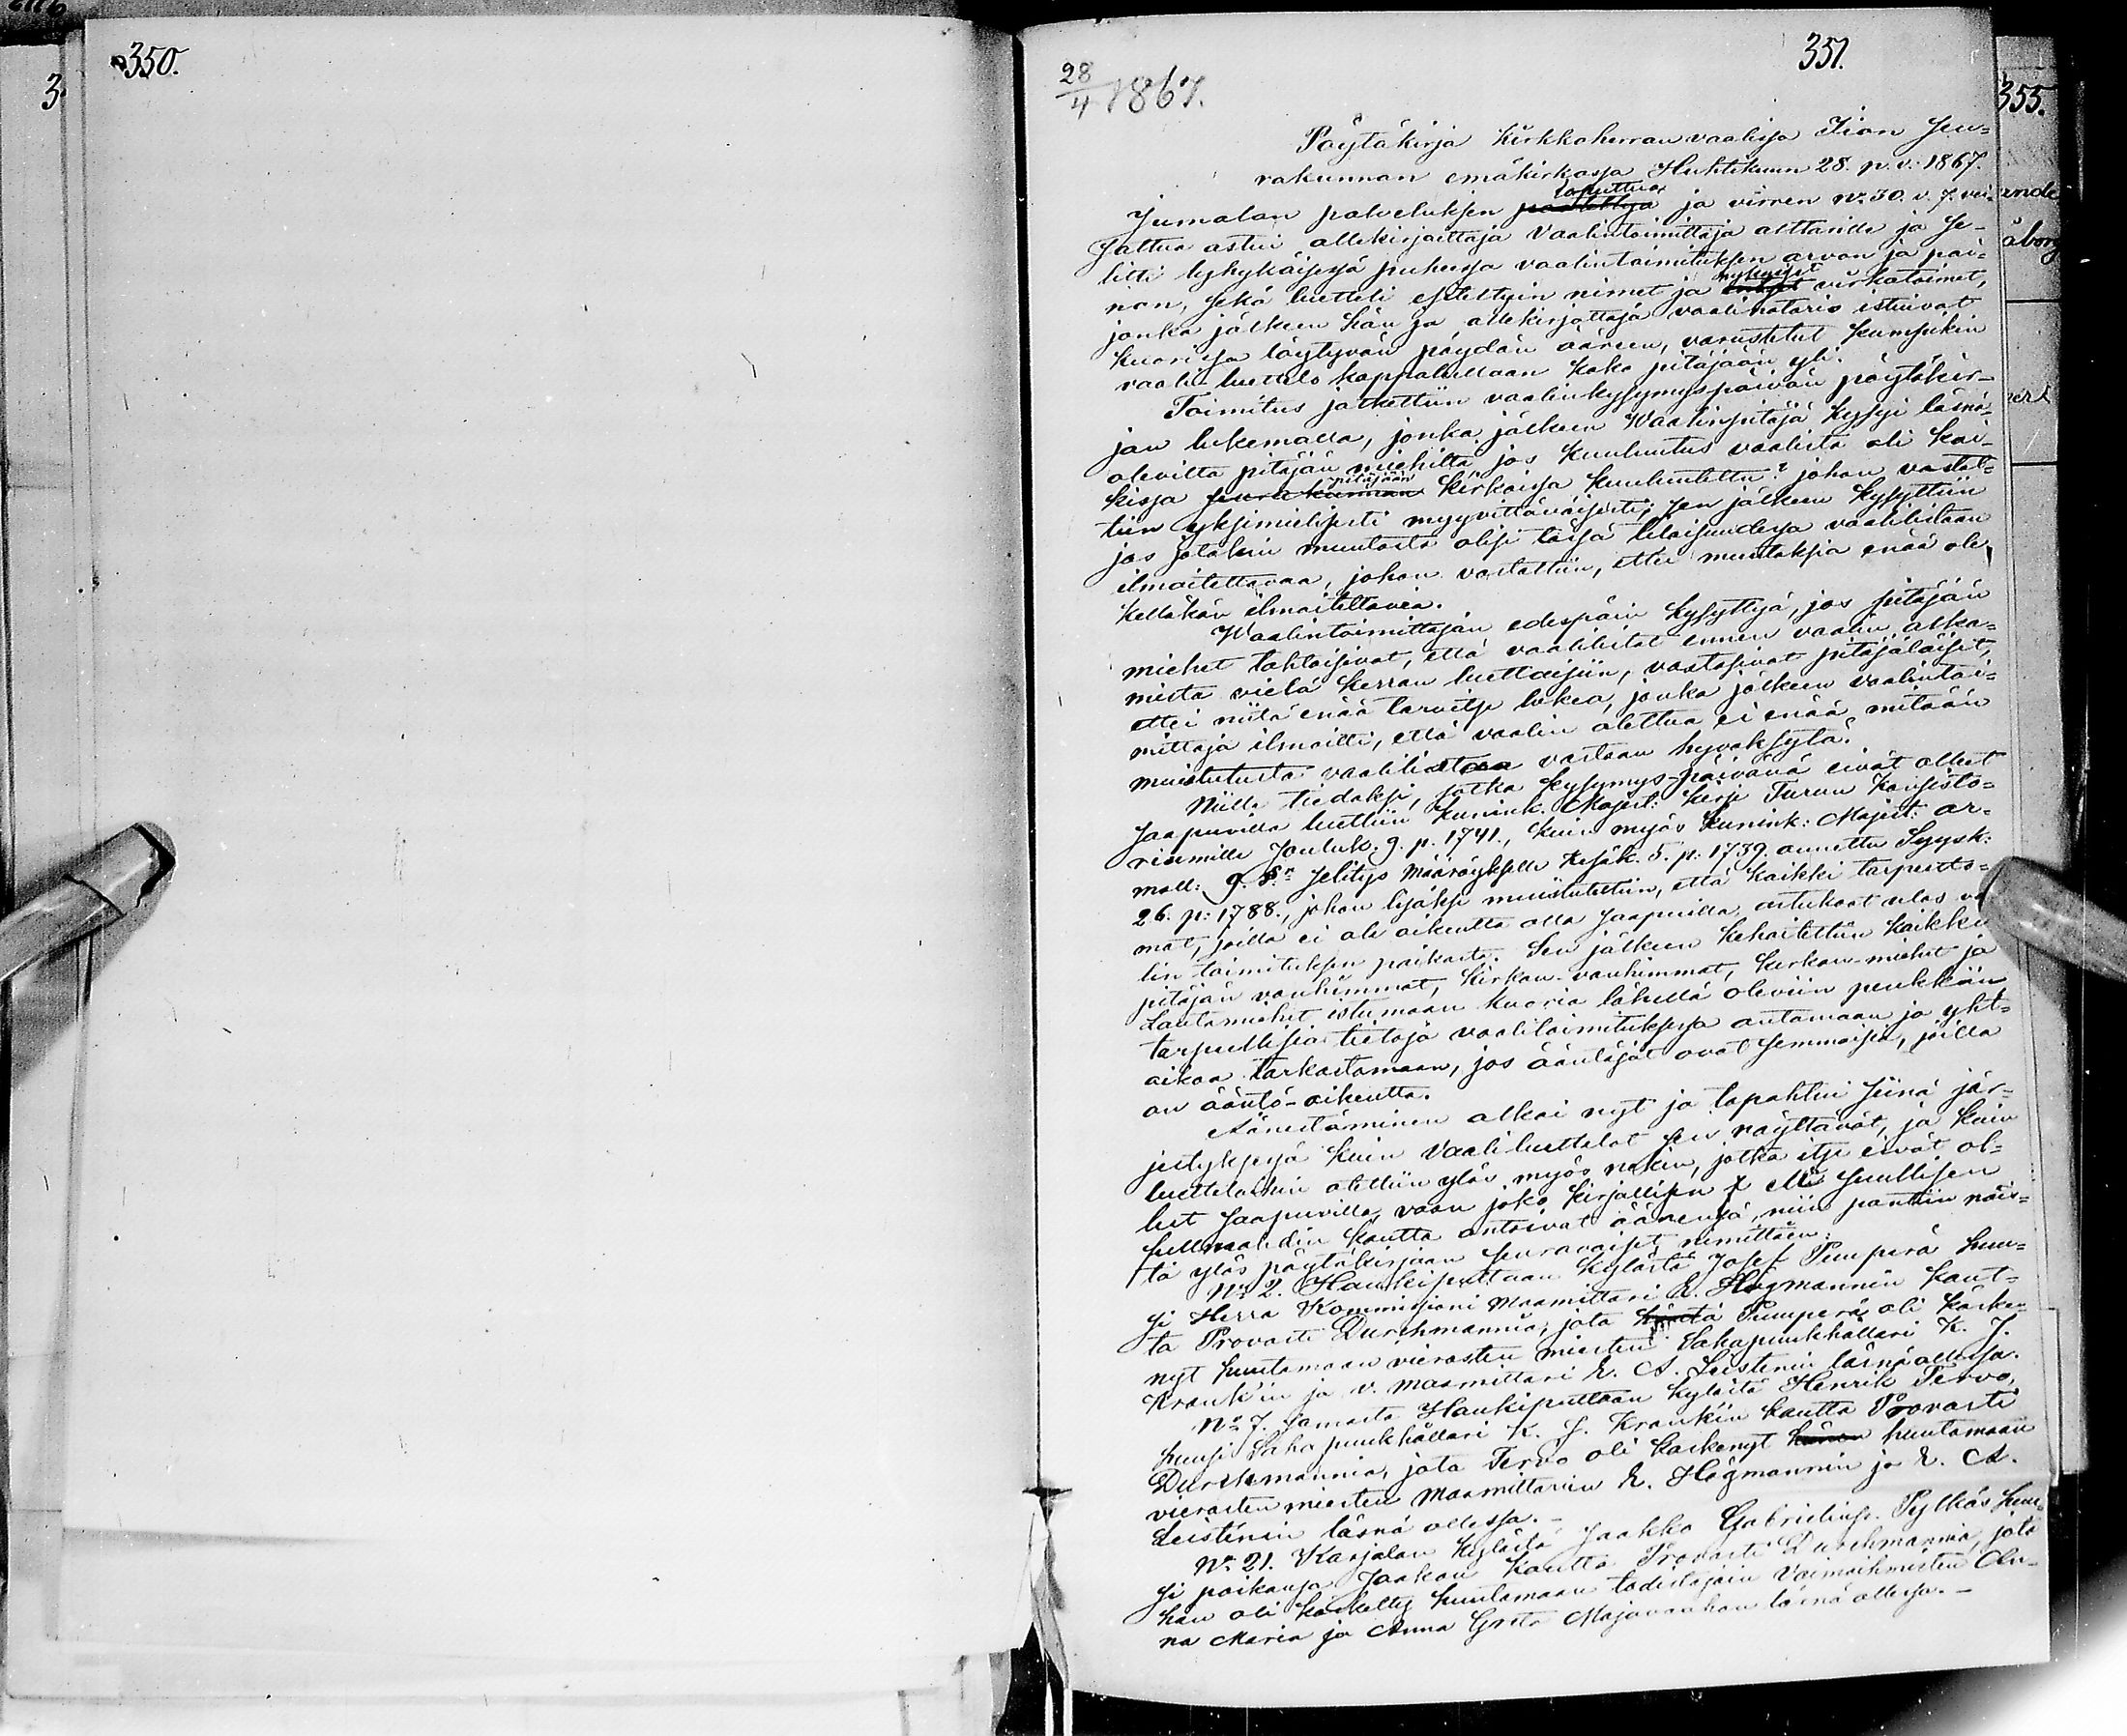 350.
3
351.
28/4 1867.
355.
Pöytäkirja Kirkkoherran vaalissa Iion Seu-
rakunnan emäkirkossa Huhtikuun 28. p. v: 1867.
loputtua
Jumalan palveluksen päätettyä ja virren No 30. v. 7. vei-
sattua astui allekirjoittaja Vaalintoimittaja alttarille ja se-
litti lyhykäisessä puheessa vaalintoimituksen arvon ja pai-
nykyiset
non, sekä luetteli esiteltyin nimet ja virkatoimet,
jonka jälkeen hän ja allekirjottaja vaalinotario istuivat
kuorissa löytyvän pöydän ääreen, varustetut kumpikin
vaali-luettelo kappaleellaan koko pitäjään yli.
Toimitus jatkettiin vaalinkysymyspäivän pöytäkir-
jan lukemalla, jonka jälkeen Waalinpitäjä kysyi läsnä-
olevilta pitäjän miehiltä, jos kuulutus vaalista oli kai-
pitäjään
kissa seurakunnan kirkoissa kuulutettu? johon vastat-
tiin yksimielisesti myyvittäväisesti; sen jälkeen kysyttiin
jos jotakin muutosta olisi tässä tilaisuudessa vaalilistaan
ilmoitettavaa, johon vastattiin, ettei muutoksia enää ole
kelläkän ilmoitettavia.
Waalintoimittajan edespäin kysyttyä, jos pitäjän
miehet tahtoisivat, että vaalilistat ennen vaalin alka-
mista vielä kerran luettaisiin, vastasivat pitäjäläiset,
ettei niitä enää tarvitse lukea, jonka jälkeen vaalintoi-
mittaja ilmoitti, että vaalin alettua ei enää mitään
muistutusta vaalilistaa vastaan hyväksytä.
Niille tiedoksi, jotka kysymys-päivänä eivät olleet
saapuvilla luettiin Kunink: Majest: kirje Turun Konsisto-
riumille Jouluk. 9. p. 1741., kuin myös Kunink: Majest: ar-
moll: selitys määräykselle Kesäk. 5. p: 1739. annettu Syysk:
26. p: 1788., johon lisäksi muistutettiin, että kaikki tarpeetto-
mat, joilla ei ole oikeutta olla saapuilla, astukoot ulos
lin toimituksen paikasta. Sen jälkeen kehoitettiin kaikki
pitäjän vanhimmat, kirkon-vanhimmat, kirkon-miehet ja
Lautamiehet istumaan kuoria lähellä oleviin penkkiin
tarpeellisia tietoja vaalitoimituksessa antamaan ja yht-
aikaa tarkastamaan, jos ääntäjät ovat semmoisia, joilla
on ääntö-oikeutta.
Äänestäminen alkoi nyt ja tapahtui siinä jär-
jestyksessä kuin Vaaliluettelot sen näyttävät, ja kuin
luetteloihin otettiin ylös myös nekin, jotka itse eivät ol-
leet saapuvilla, vaan joko kirjallisen eli suullisen
fullmahdin kautta antoivat äänensä, niin pantiin näis-
tä ylös pöytäkirjaan seuravaiset, nimittäin:
No 2. Haukiputaan kylästä Josef Puuperä huu-
si Herra Kommissioni Maamittari E. Högmannin kaut-
ta Provasti Durchmannia, jota Puuperä oli käske-
nyt huutamaan vierasten miesten Sahapuukhållari K. J.
Krank'in ja v. Maamittari E. A. Leistenin läsnä ollessa.
No 7. samasta Haukiputtaan kylästä Henrik Tervo,
huusi Saha puukhållari K. J. Krank'in kautta Provasti
Durchmannia, jota Tervo oli käskenyt huutamaan
vierasten miesten Maamittarien E. Högmannin ja E. A.
Leistenin läsnä ollessa. –
No 21. Karjalan kylästä Jaakko Gabrielinp. Pylkäs huu-
si poikansa Jaakon kautta Provasti Durchmannia, jota
hän oli käskettyy huutamaan todistajain Vaimoihmisten An-
na Maria ja Anna Greta Majavanhan läsnä ollessa. –